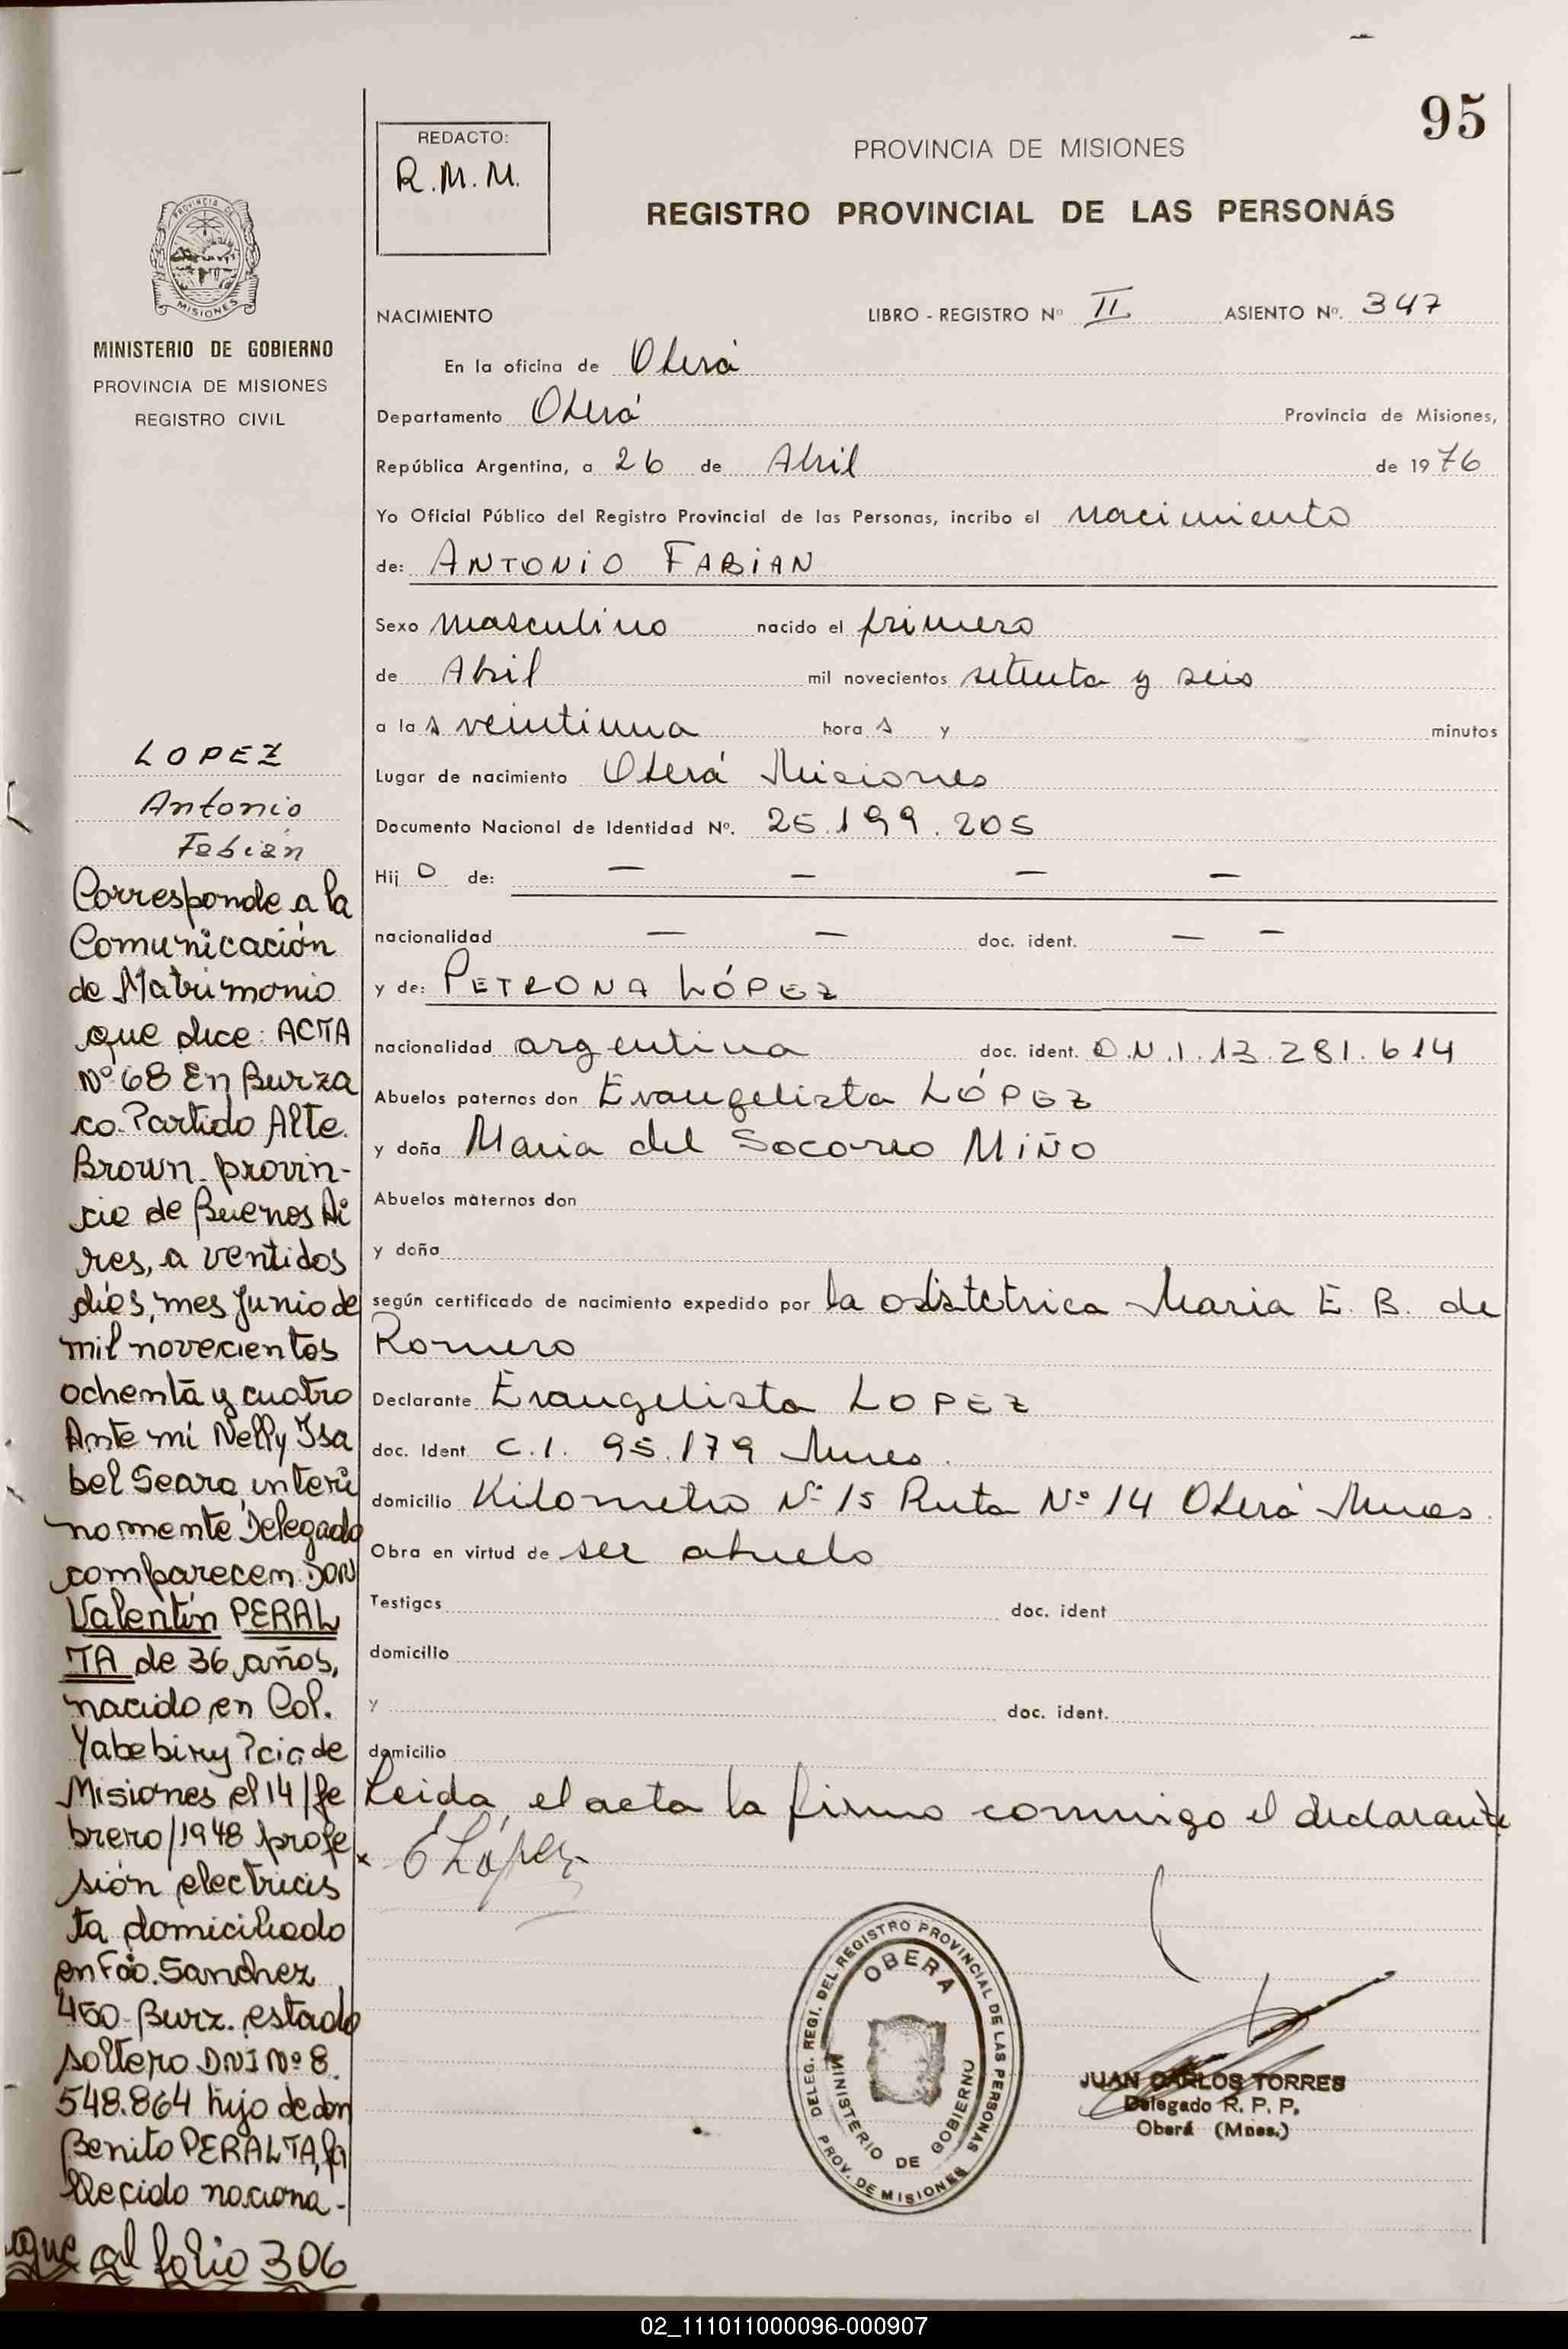 95
REDACTO:
R.M.M.
PROVINCIA DE MISIONES
REGISTRO PROVINCIAL DE LAS PERSONAS
PROVINCIA DE
MISIONES
MINISTERIO DE GOBIERNO
PROVINCIA DE MISIONES
REGISTRO CIVIL
NACIMIENTO LIBRO - REGISTRO Nº II ASIENTO Nº. 347
En la oficina de Oberá
Departamento Oberá Provincia de Misiones,
República Argentina, a 26 de Abril de 1976
Yo Oficial Público del Registro Provincial de las Personas, incribo el nacimiento
de: ANTONIO FABIAN
Sexo masculino nacido el primero
de Abril mil novecientos setenta y seis
a la s veintiuna hora s y minutos
Lugar de nacimiento Oberá Misiones
Documento Nacional de Identidad Nº. 25.199.205
Hij o de: — — — —
nacionalidad — — doc. ident. — —
y de: PETRONA LÓPEZ
nacionalidad argentina doc. ident. D.N.I. 13.281.614
Abuelos paternos don Evangelista LÓPEZ
y doña Maria del Socorro MIÑO
Abuelos maternos don
y doña
según certificado de nacimiento expedido por la obstetrica Maria E. B. de
Romero
Declarante Evangelista LOPEZ
doc. Ident. C.I. 95.179 Mnes.
domicilio Kilometro Nº 15 Ruta Nº 14 Oberá Mnes.
Obra en virtud de ser abuelo
Testigos doc. ident
domicilio
y doc. ident.
domicilio
Leida el acta la firmo conmigo el declarante
x E López
DELEG. REGI. DEL REGISTRO PROVINCIAL DE LAS PERSONAS
OBERA
MINISTERIO DE GOBIERNO
PROV. DE MISIONES
JUAN CARLOS TORRES
Delegado R. P. P.
Oberá (Mnes.)
LOPEZ
Antonio
Fabián
Corresponde a la
Comunicación
de Matrimonio
que dice: ACTA
Nº 68 En Burza
co. Partido Alte.
Brown provin-
cia de Buenos Ai
res, a ventidos
días, mes Junio de
mil novecientos
ochenta y cuatro
Ante mi Nelly Isa
bel Seara, interi
namente Delegado
comparecen DON
Valentín PERAL
TA de 36 años,
nacido en Col.
Yabebiry Pcia de
Misiones el 14/fe
brero/1948 profe
sión electricis
ta domiciliado
en Fco. Sanchez
450 - Burz. estado
soltero DNI Nº 8.
548.864 hijo de don
Benito PERALTA, fa
llecido naciona-
sigue al folio 306
02_111011000096-000907